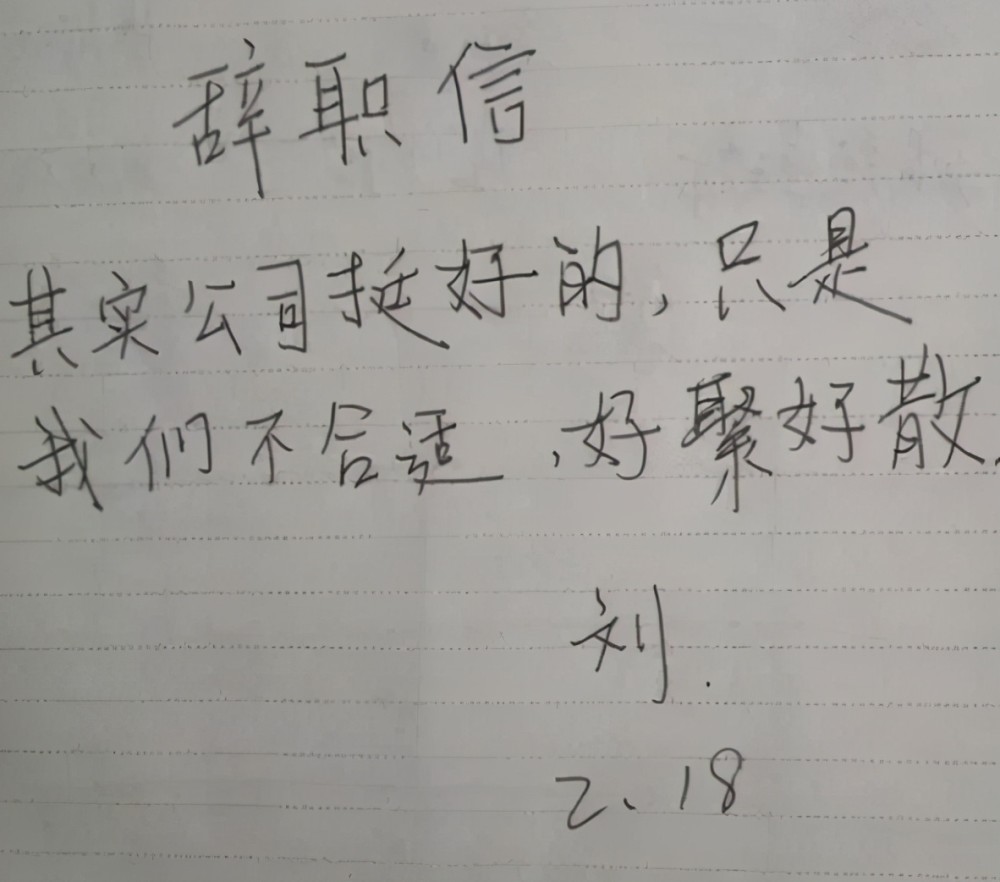 辞职信
其实公司挺好的,只是
我们不合适,好聚好散.
刘.
2、18